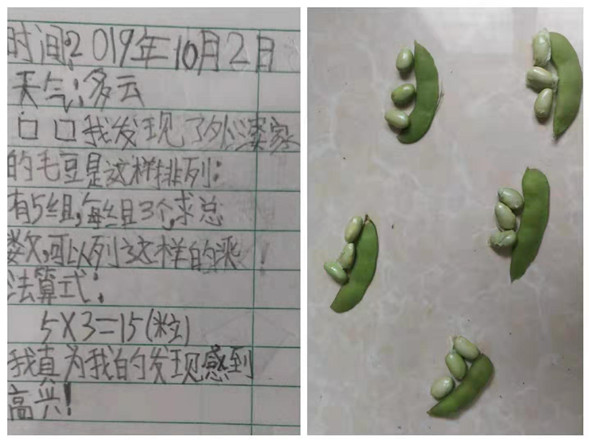 时间:2019年10月2日
天气:多云
口口我发现了外婆家
的毛豆是这样排列:
有5组,每组3个,求总
数,可以列这样的乘
法算式:
5×3=15(粒)
我真为我的发现感到
高兴!